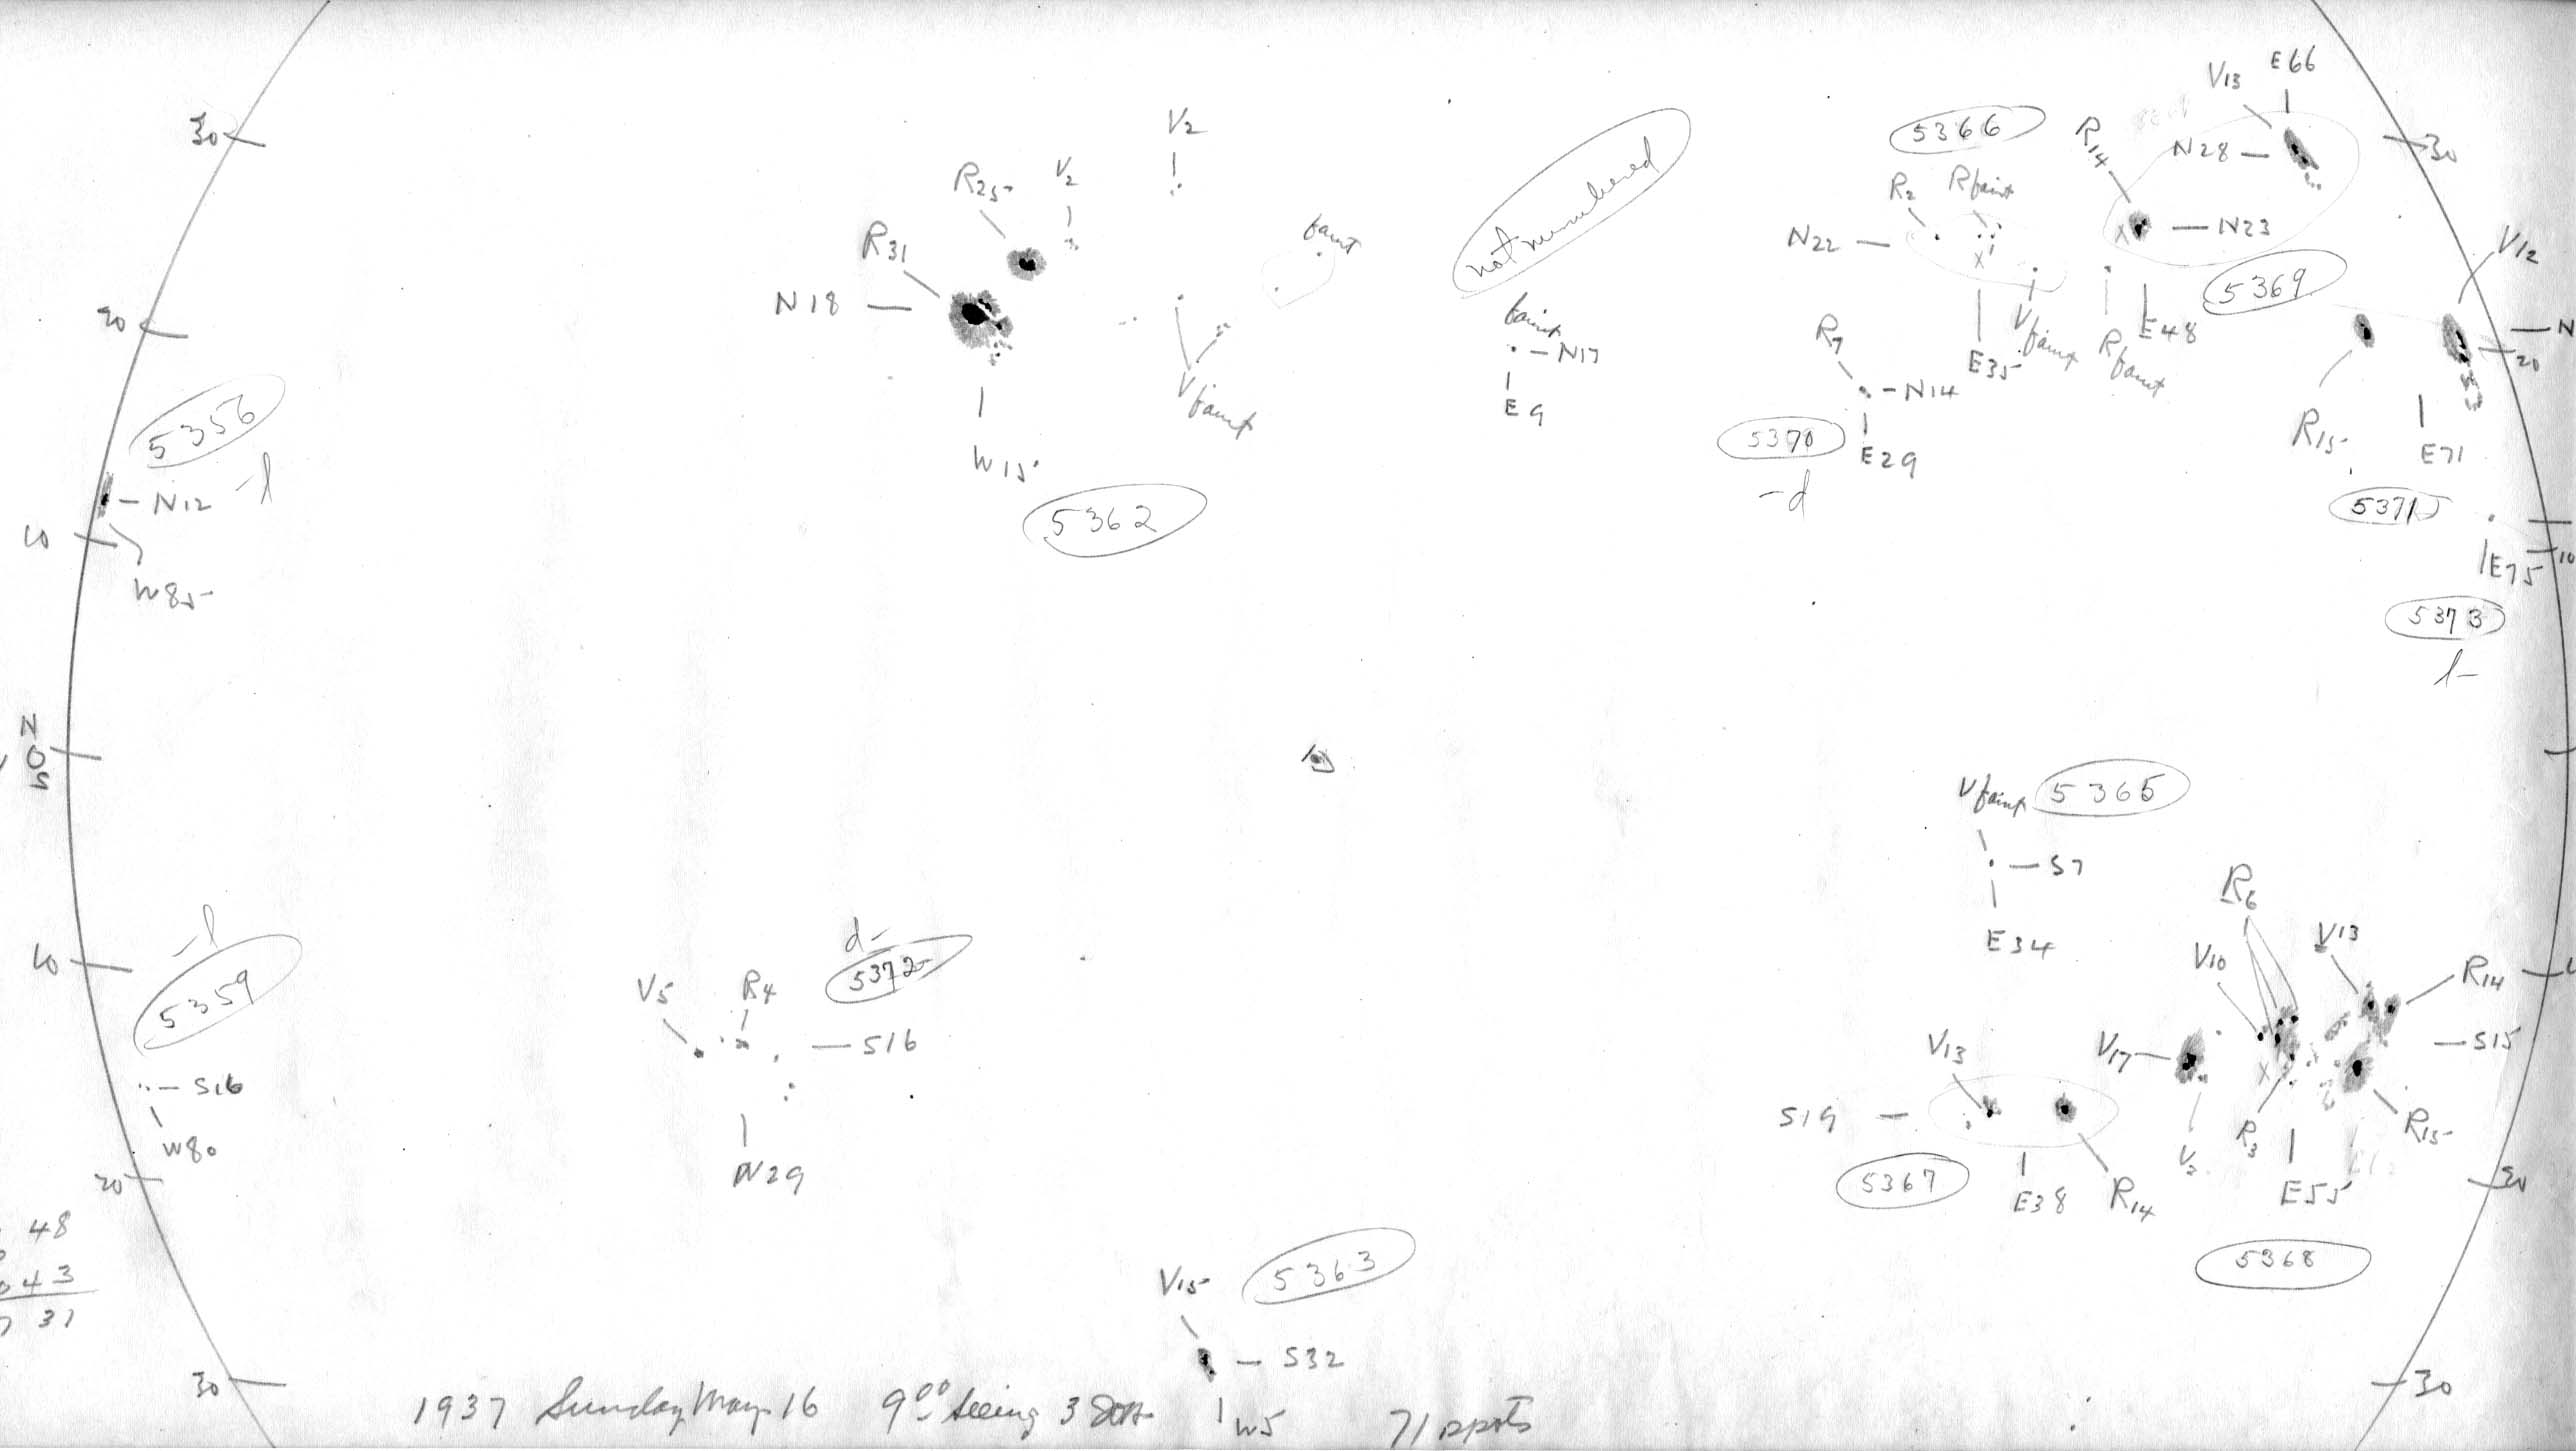 V13 E66
30
V2
5366
R14
N28
30
R25
V2
R2
Rfaint
R31
faint
not numbered
N22
N23
V12
N18
5369
20
Vfaint
faint
N17
R7
E35
Vfaint
Rfaint
E48
N
20
5356
E9
N14
R15
N12
-l
W15
Vfaint
5370
E29
E71
5362
-d
5371
10
W85
E75
10
5373
l-
N
0
S
Vfaint
5365
S7
R6
E34
V10
V13
-l
d-
10
5359
V5
R4
5372
R14
S16
V13
V17
S15
S16
W80
N29
S19
R3
R15
V2
20
5367
E38
R14
E55
20
48
43
31
V15
5363
5368
30
S32
30
1937 Sunday May 16 9⁰⁰ seeing 3
W5
71 spots